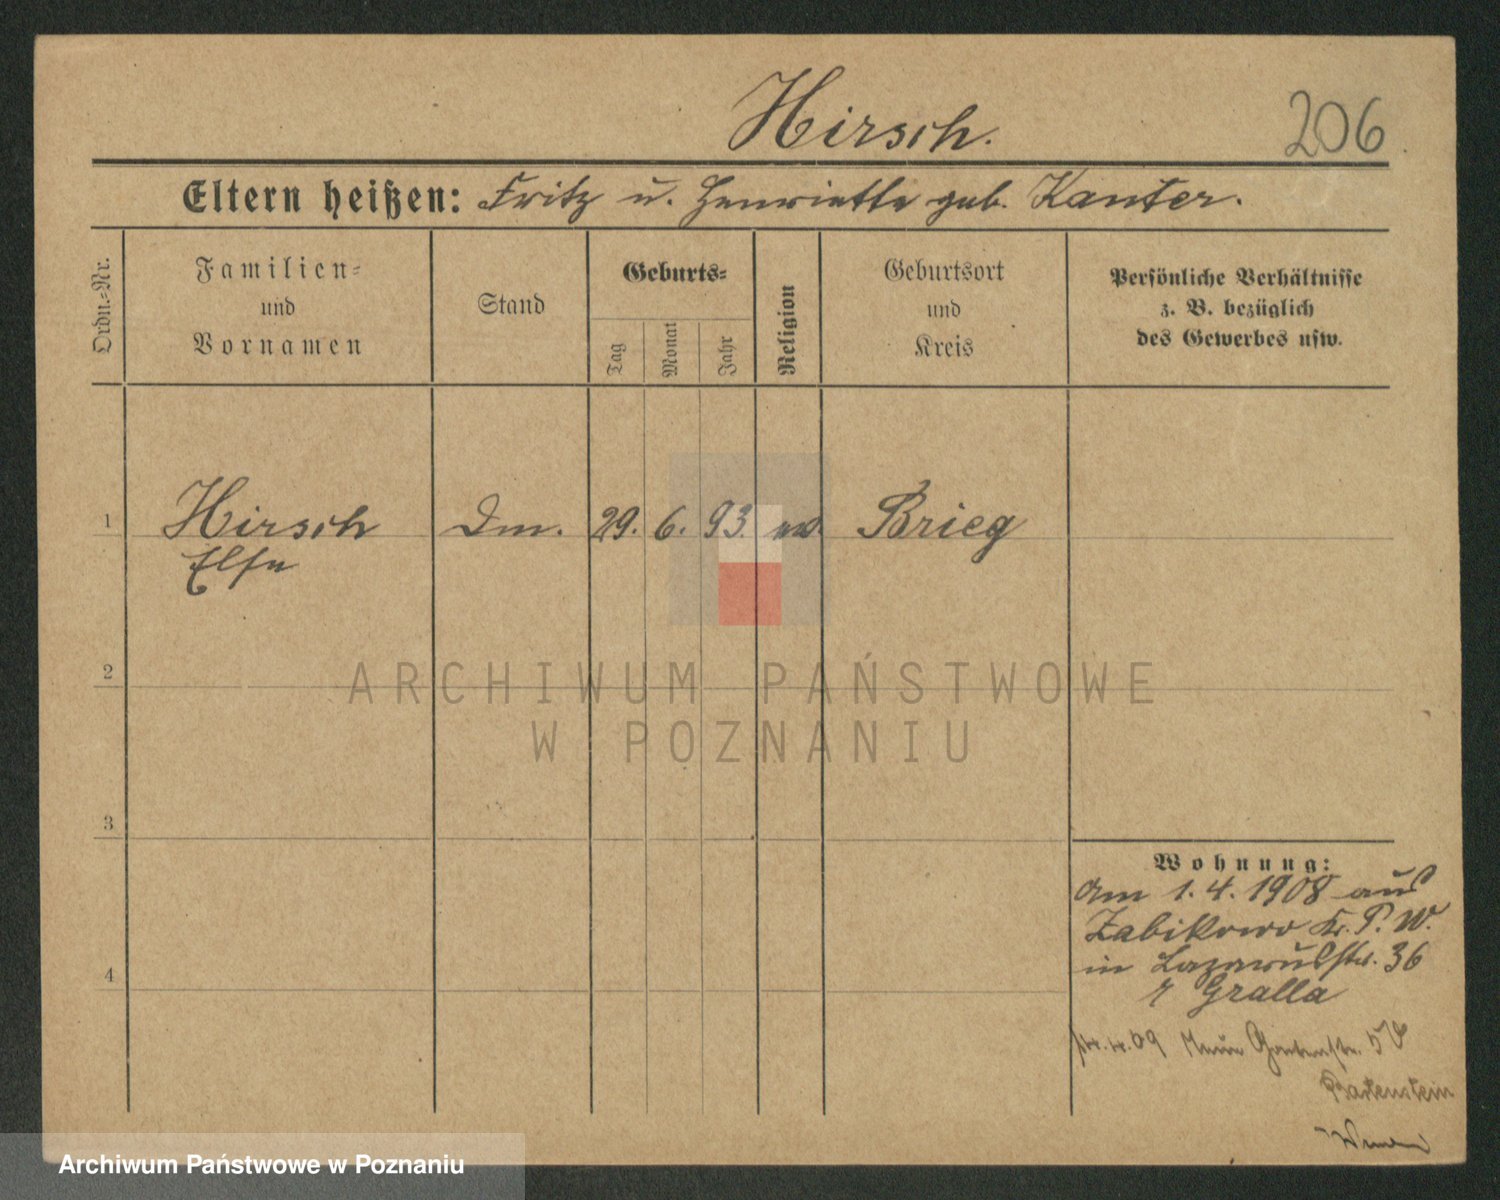 Hirsch.
206
Eltern heißen: Fritz u. Henriette geb. Kanter.
Ordn.-Nr.
Familien-
und
Vornamen
Stand
Geburts-
Tag
Monat
Jahr
Religion
Geburtsort
und
Kreis
Persönliche Verhältnisse
z. B. bezüglich
des Gewerbes usw.
1 Hirsch Dm. 29. 6. 93. ev. Brieg
Else
2
ARCHIWUM PAŃSTWOWE
W POZNANIU
3
Wohnung:
Am 1.4.1908 aus
Zabikowo Kr. P. W.
in Lazarusstr. 36
Gralla
4
09 Neue Gartenstr.
Bartenstein
Archiwum Państwowe w Poznaniu